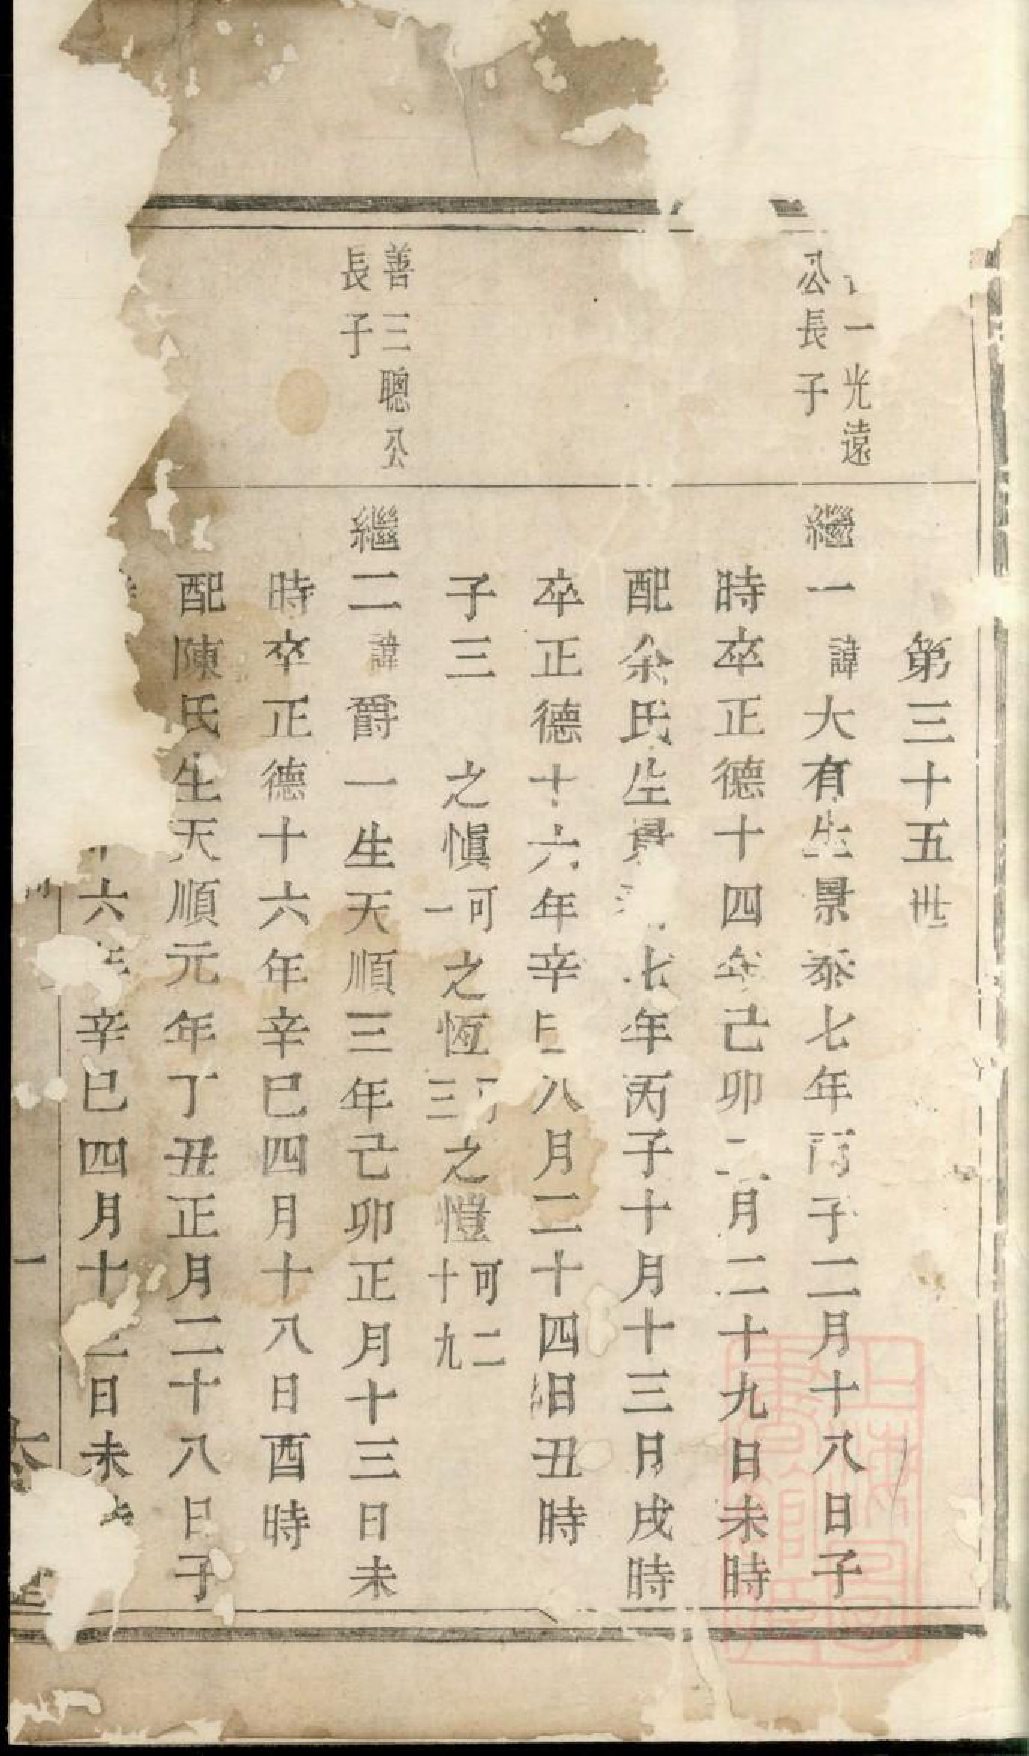 第三十五世
一光遠
公長子
繼一諱大有生景泰七年丙子二月十八日子
時卒正德十四年己卯二月二十九日未時
配余氏生景七年丙子十月十三日戌時
卒正德十六年辛巳八月二十四日丑時
子三 之愼可一之恆可三之愷可二十九
善三聰公
長子
繼二諱爵一生天順三年己卯正月十三日未
時卒正德十六年辛巳四月十八日酉時
配陳氏生天順元年丁丑正月二十八日子
六年辛巳四月十日未時
一
上海圖書館藏